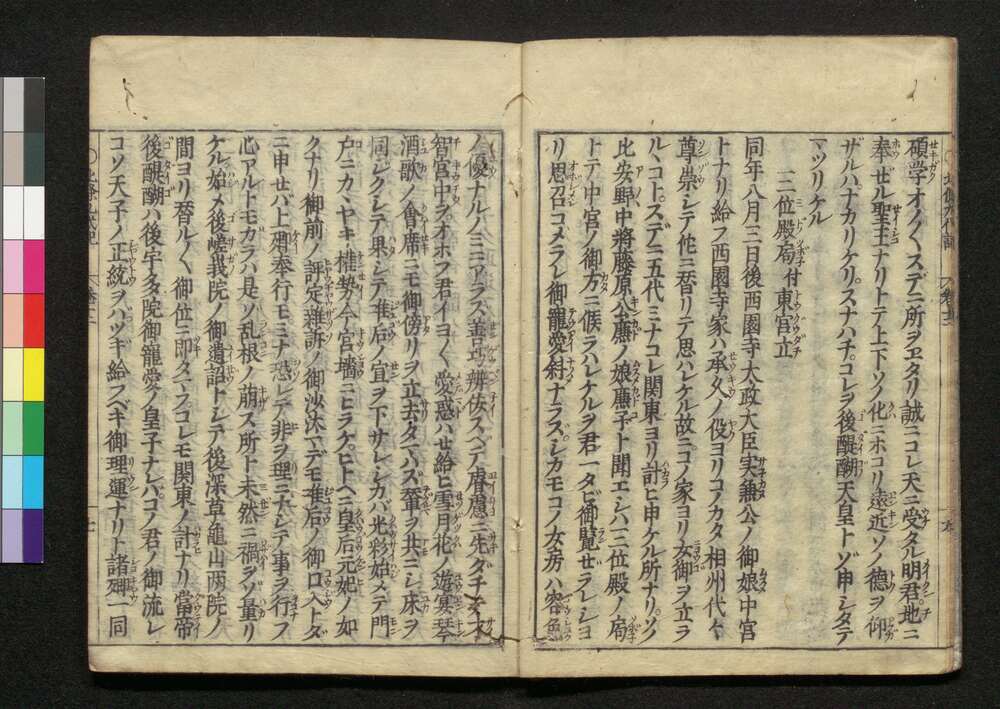 碩学オノ〱スデニ所ヲヱタリ誠ニコレ天ニ受タル明君地ニ
奉せル聖王ナリトテ上下ソノ化ニホコリ遠近ソノ徳ヲ仰
ザルハナカリケリスナハチコレヲ後醍醐天皇トゾ申シタテ
マツリケル
三位殿局付東宮立
同年八月三日後西園寺大政大臣実兼公ノ御娘中宮
トナリ給フ西園寺家ハ承久ノ役ヨリコノカタ相州代々
尊崇シテ他ニ替リテ思ハレケル故ニコノ家ヨリ女御ヲ立ラ
ルヽコトスデニ五代ミナコレ関東ヨリ計ヒ申ケル所ナリソノ
比安野中將藤原公廉ノ娘廉子ト聞エシハ三位殿ノ局
トテ中宮ノ御方ニ候ラハレケルヲ君一タビ御覧ぜラレシヨ
リ思召コメラレ御寵愛斜ナラズシカモコノ女房ハ容色
ノ優ナルノミニアラズ善巧辨佞スベテ膚慮ニ先ダチ
智宮中ヲオホフ君イヨ〱愛惑ハせ給ヒ雪月花ノ遊宴琴
酒歌ノ會席ニモ御傍リヲ立去タマハズ輦ヲ共ニシ床ヲ
同シクシテ果シテ准后ノ宣ヲ下サレシカバ光彩始メテ門
戸ニカヽヤキ権勢今宮墻ニヒラケヒトヘニ皇后元妃ノ如
クナリ御前ノ評定雜訴ノ御沙汰マデモ准后ノ御口入トダ
ニ申せバ上卿奉行モミナ恐レテ非ヲ理ニナシテノ事ヲ行フ
心アルトモガラハ是ソ乱根ノ萠ス所ト未然ニ禍ヲゾ量リ
ケル始メ後嵯我院ノ御遺詔トシテ後深草亀山両院ノ
間ヨリ替ル〱御位ニ即タマフコレモ関東ノ計ナリ當帝
後醍醐ハ後宇多院御寵愛ノ皇子ナレバコノ君ノ御流レ
コソ天子ノ正統ヲハツギ給フベキ御理運ナリト諸卿一同